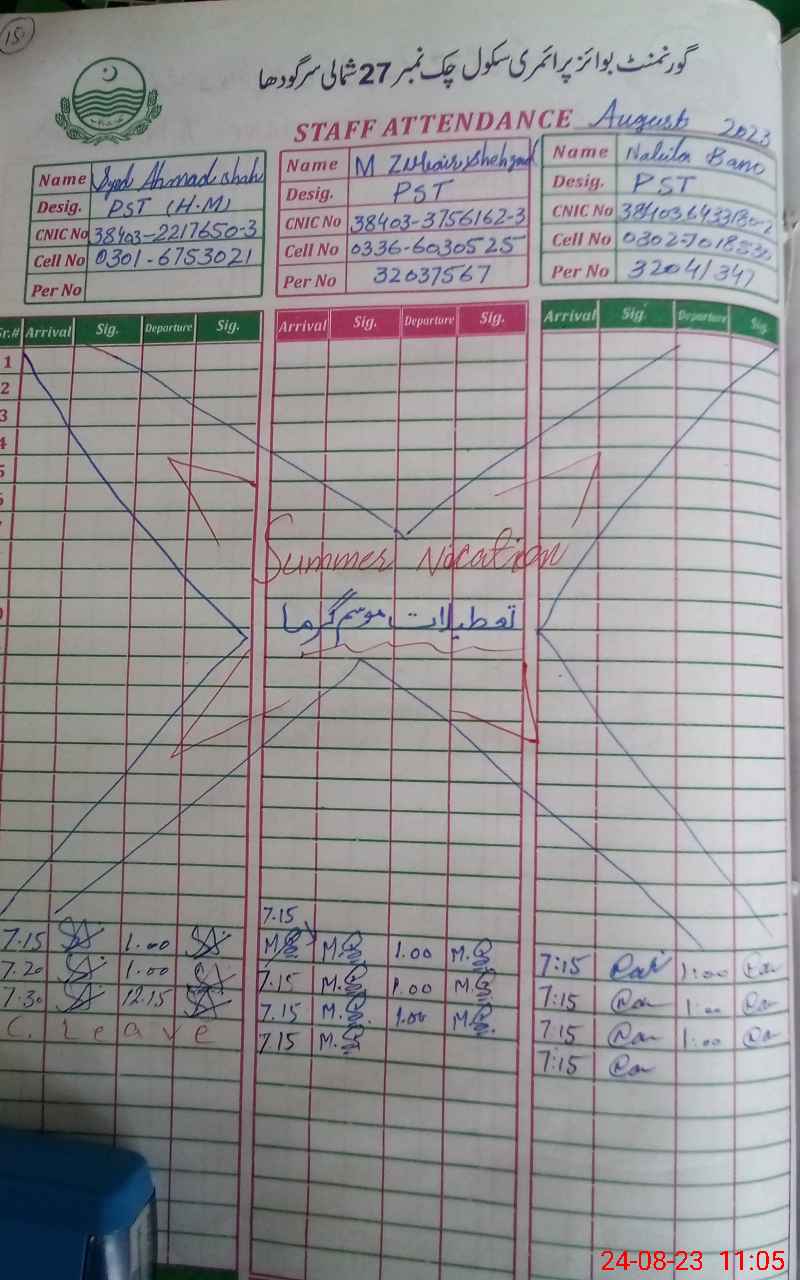 15
گورنمنٹ بوائز پرائمری سکول چک نمبر 27 شمالی سرگودھا
STAFF ATTENDANCE August 2023
Name Syed Ahmad shah
Desig. PST (H.M)
CNIC No 38403-2217650-3
Cell No 0301-6753021
Per No
Name M Zuhair Shehzad
Desig. PST
CNIC No 38403-3756162-3
Cell No 0336-6030525
Per No 32037567
Name Bano
Desig. PST
CNIC No
Cell No
Per No 32041347
Sr.# Arrival Sig. Departure Sig. Arrival Sig. Departure Sig. Arrival Sig. Departure Sig.
1
2
3
4
5
6
Summer Vacation
تعطیلات موسم گرما
7.15
7.15 1.00 M.S M.S 1.00 M.S 7:15 1:00
7.20 1.00 7.15 M.S 1.00 M.S 7:15 1:00
7.30 12.15 7.15 M.S 1.00 M.S 7:15 1:00
C. Leave 7.15 M.S 7:15
24-08-23 11:05